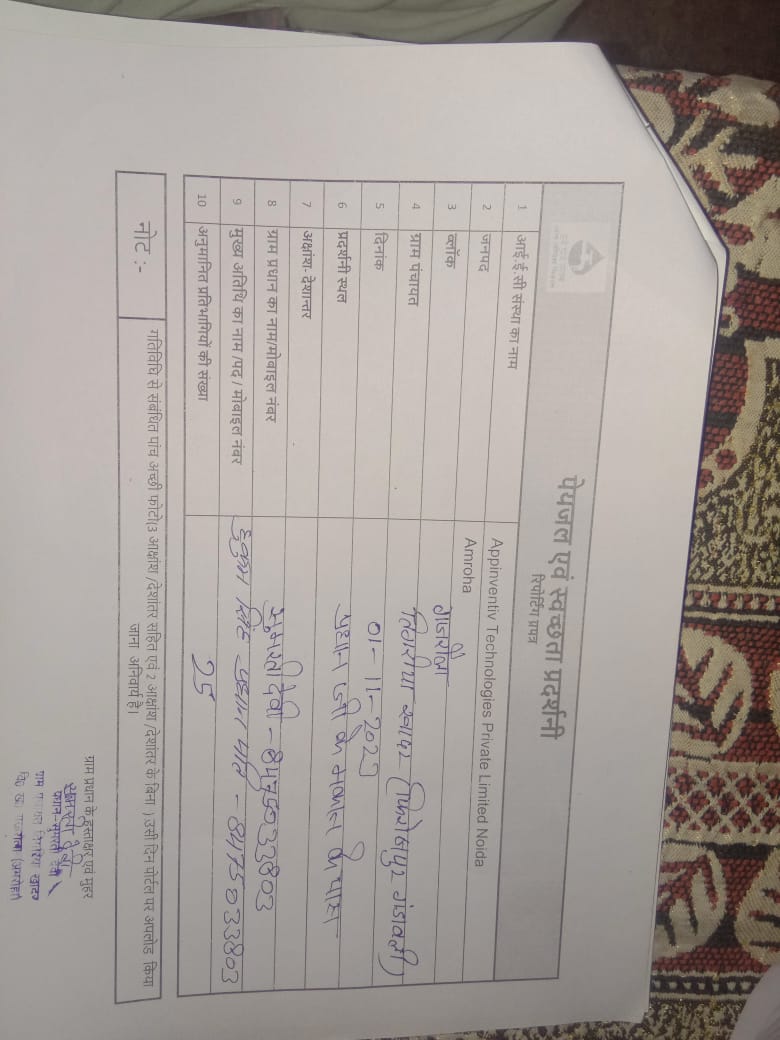 पेयजल एवं स्वच्छता प्रदर्शनी
रिपोर्टिंग प्रपत्र
1 आई.ई.सी संस्था का नाम Appinventiv Technologies Private Limited Noida
2 जनपद Amroha
3 ब्लॉक
4 ग्राम पंचायत
5 दिनांक 01-11-2023
6 प्रदर्शनी स्थल प्रधान जी के मकान के पास
7 अक्षांश-देशान्तर
8 ग्राम प्रधान का नाम/मोबाइल नंबर - 8475033803
9 मुख्य अतिथि का नाम /पद / मोबाइल नंबर हुकुम सिंह प्रधान पति - 8475033803
10 अनुमानित प्रतिभागियों की संख्या 25
नोट :- गतिविधि से संबंधित पांच अच्छी फोटो(3 आक्षांश /देशांतर सहित एवं 2 आक्षांश /देशांतर के बिना ) उसी दिन पोर्टल पर अपलोड किया
जाना अनिवार्य है।
ग्राम प्रधान के हस्ताक्षर एवं मुहर